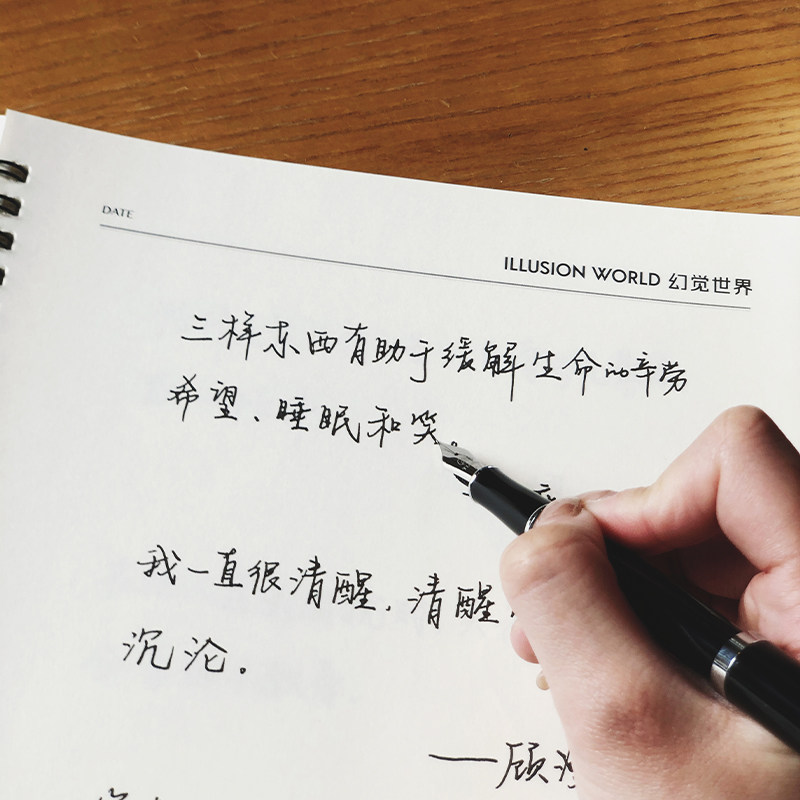 DATE
ILLUSION WORLD 幻觉世界
三样东西有助于缓解生命的辛劳
希望、睡眠和笑。
我一直很清醒,清醒
沉沦。
——顾